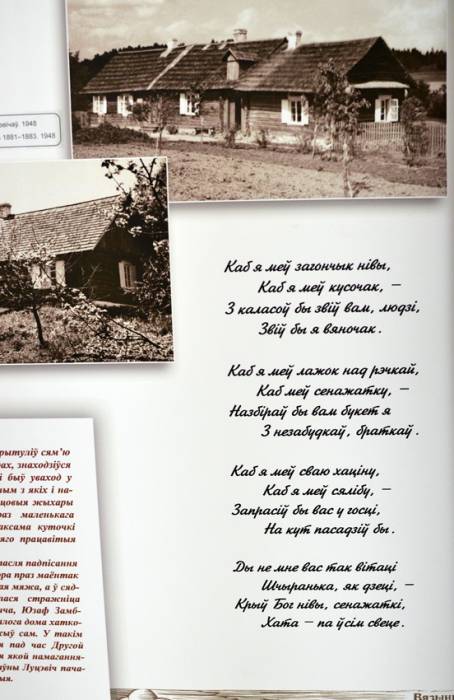 1948
1881–1883. 1948
Каб я меў загончык нівы,
Каб я меў кусочак, —
З каласоў бы звіў вам, людзі,
Звіў бы я вяночак.
Каб я меў лажок над рэчкай,
Каб меў сенажатку, —
Назбіраў бы вам букет я
З незабудкаў, браткаў.
Каб я меў сваю хаціну,
Каб я меў сялібу, —
Запрасіў бы вас у госці,
На кут пасадзіў бы.
Ды не мне вас так вітаці
Шчыранька, як дзеці, —
Крый Бог нівы, сенажаткі,
Хата — па ўсім свеце.
рытуліў сям’ю
ах, знаходзіўся
і быў уваход у
ным з якіх і на-
цовыя жыхары
раз маленькага
аксама куточкі
яго працавітыя
пасля падпісання
ора праз маёнтак
ая мяжа, а ў сяд-
лася стражніца
іча, Юзаф Замб-
алога дома хатко-
сыў сам. У такім
я пад час Другой
я якой намагання-
аўны Луцэвіч пача-
ыя.